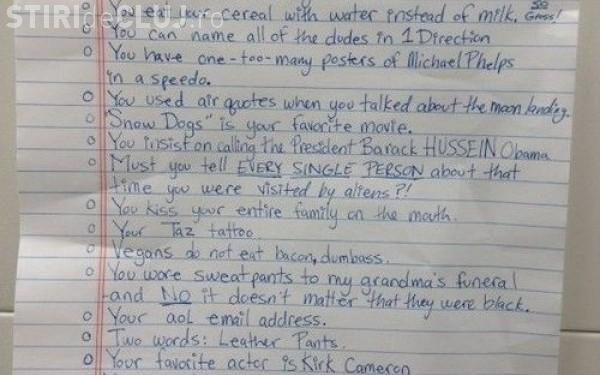 STIRIdeCLUJ.ro
You eat your cereal with water instead of milk. so Gross!
You can name all of the dudes in 1 Direction
You have one-too-many posters of Michael Phelps
in a speedo.
You used air quotes when you talked about the moon landing.
"Snow Dogs" is your favorite movie.
You insist on calling the President Barack HUSSEIN Obama
Must you tell EVERY SINGLE PERSON about that
time you were visited by aliens?!
You kiss your entire family on the mouth.
Your Taz tattoo
Vegans do not eat bacon, dumbass.
You wore sweatpants to my grandma's funeral
-and NO it doesn't matter that they were black.
Your aol email address.
Two words: Leather Pants.
Your favorite actor is Kirk Cameron